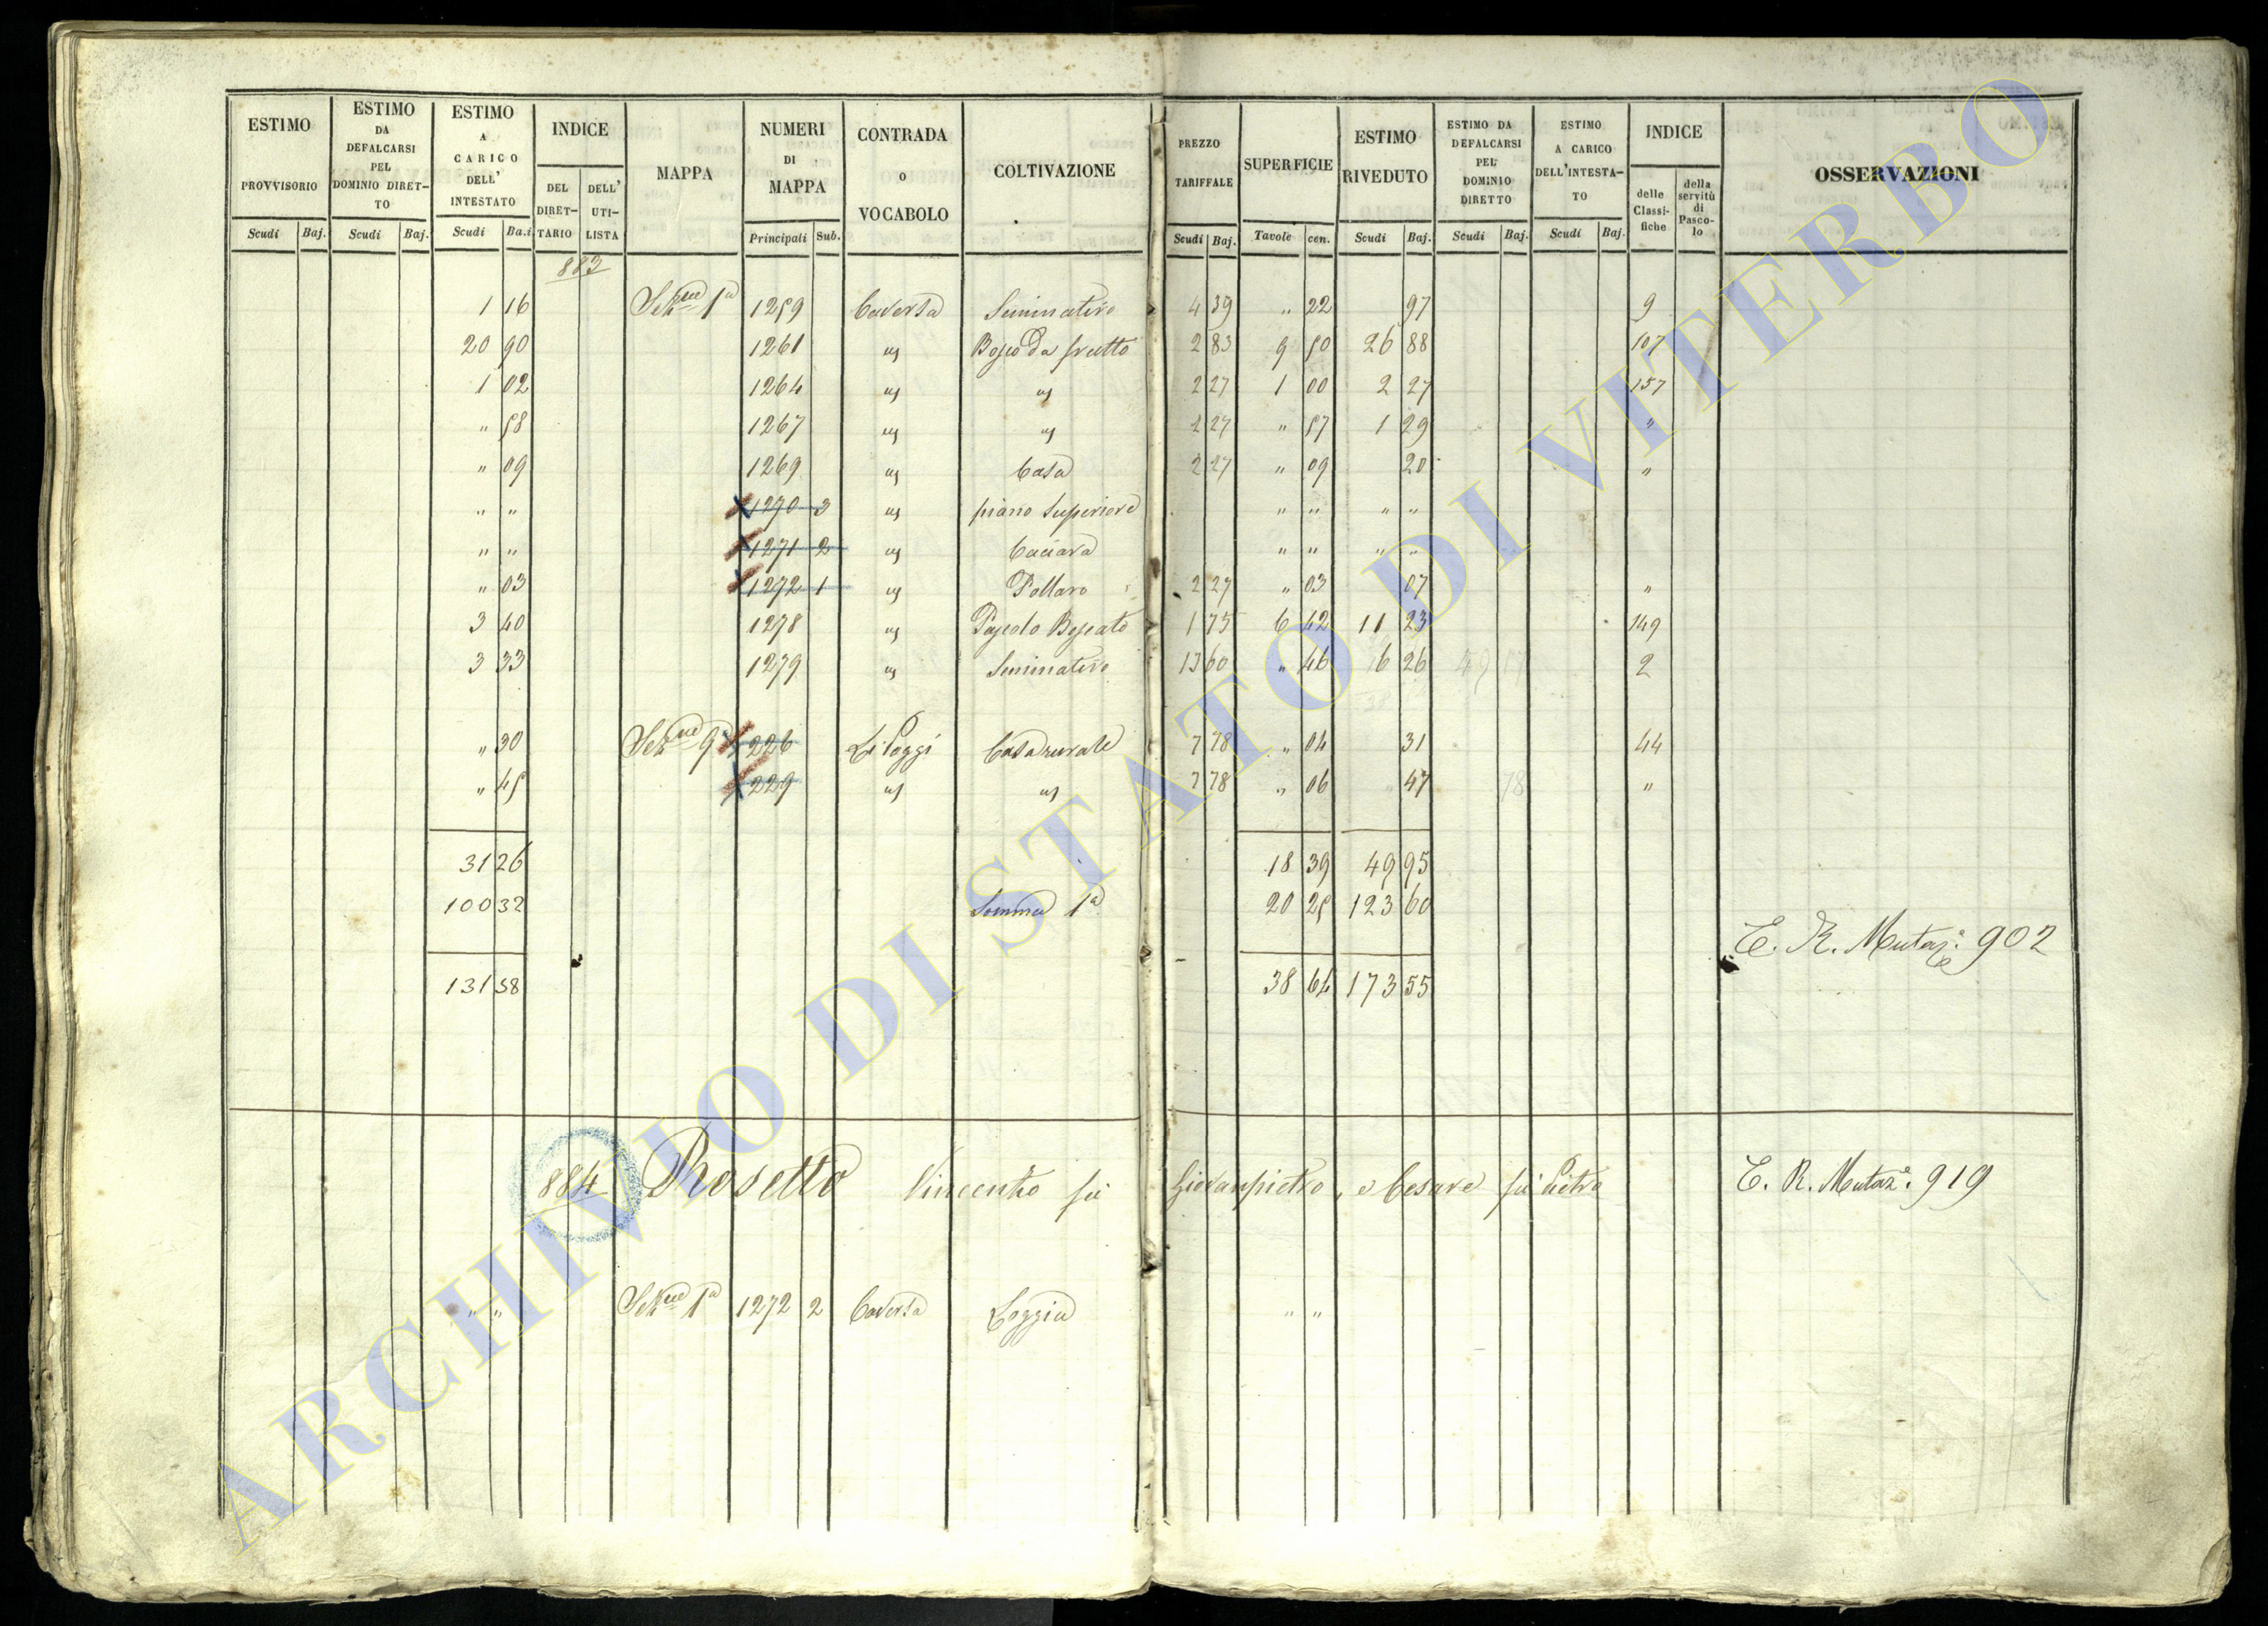 ESTIMO PROVVISORIO Scudi Baj.
ESTIMO DA DEFALCARSI PEL DOMINIO DIRETTO Scudi Baj.
ESTIMO A CARICO DELL' INTESTATO Scudi Ba.i
INDICE DEL DIRETTARIO DELL' UTILISTA
MAPPA
NUMERI DI MAPPA Principali Sub.
CONTRADA o VOCABOLO
COLTIVAZIONE
PREZZO TARIFFALE Scudi Baj.
SUPERFICIE Tavole cen.
ESTIMO RIVEDUTO Scudi Baj.
ESTIMO DA DEFALCARSI PEL DOMINIO DIRETTO Scudi Baj.
ESTIMO A CARICO DELL'INTESTATO Scudi Baj.
INDICE delle Classifiche della servitù di Pascolo
OSSERVAZIONI
883
1 16 Sezne 1a 1259 Caversa Seminativo 4 39 " 22 97 9
20 90 1261 " Bosco da frutto 2 83 9 50 26 88 107
1 02 1264 " " 2 27 1 00 2 27 157
" 58 1267 " " 2 27 " 57 1 29 "
" 09 1269 " Casa 2 27 " 09 20 "
" " 1270 3 " piano Superiore " " " "
" " 1271 2 " Caciara " " " "
" 03 1272 1 " Pollaro 2 27 " 03 07 "
3 40 1278 " Pascolo Boscato 1 75 6 42 11 23 149
3 33 1279 " Seminativo 13 60 " 46 6 26 2
" 30 Sezne 9a 226 Li Poggi Casa rurale 7 78 " 04 31 44
" 45 229 " " 7 78 " 06 47 78 "
31 26 18 39 49 95
100 32 Somma 1a 20 25 123 60
E. R. Mutaze 902
131 58 38 64 173 55
884 Rosetto Vincenzo fu Giovanpietro, e Cesare fu Pietro E. R. Mutaz. 919
" " Sezne 1a 1272 2 Caversa Loggia " "
ARCHIVIO DI STATO DI VITERBO